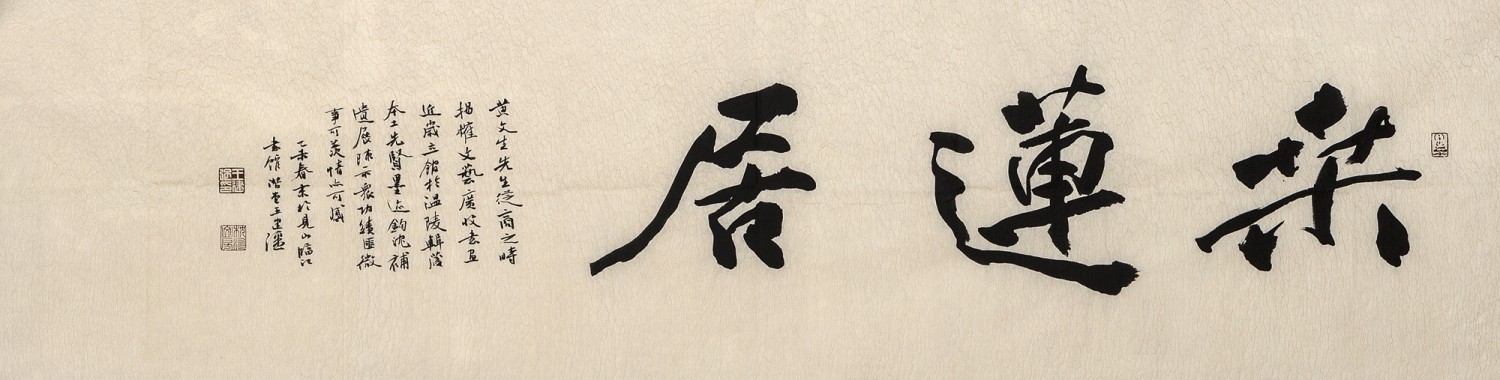 桑蓮居
黄文生先生從商之時
揚搉文藝廣收書畫
近歲立館於溫陵輯藏
本土先賢墨迹鈎沉補
遺展陳示衆功績匪微
事可羨情亦可感
乙未春末於見山臨江
書館